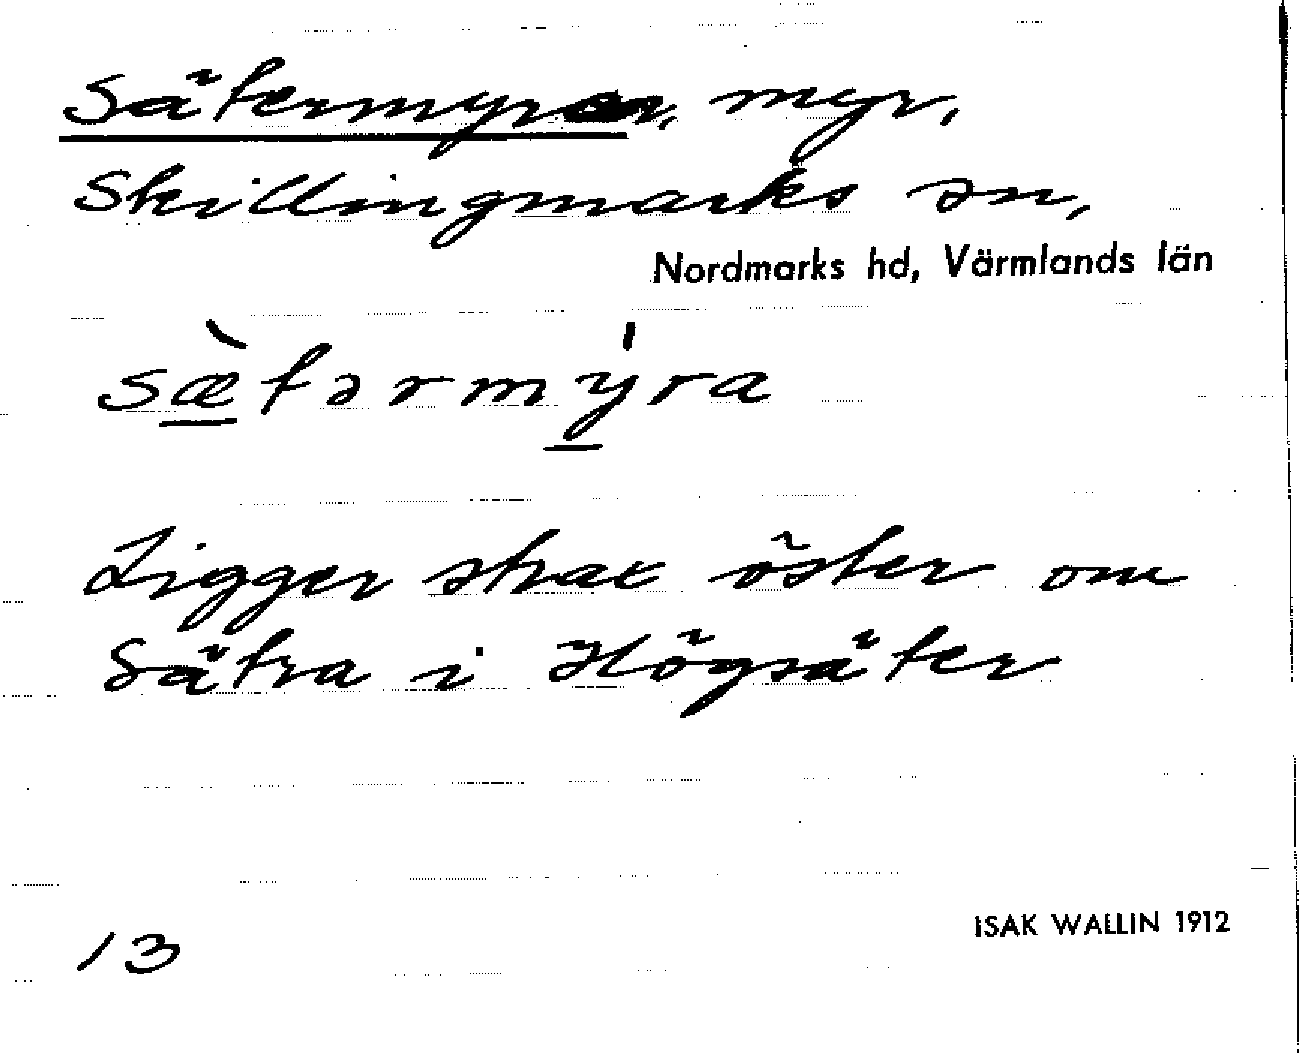 Sätermyren, myr,
Skillingmarks sn,
Nordmarks hd, Värmlands län
sæ̀tərmýra
Ligger strax öster om
Sätra i Högsäter
ISAK WALLIN 1912
13